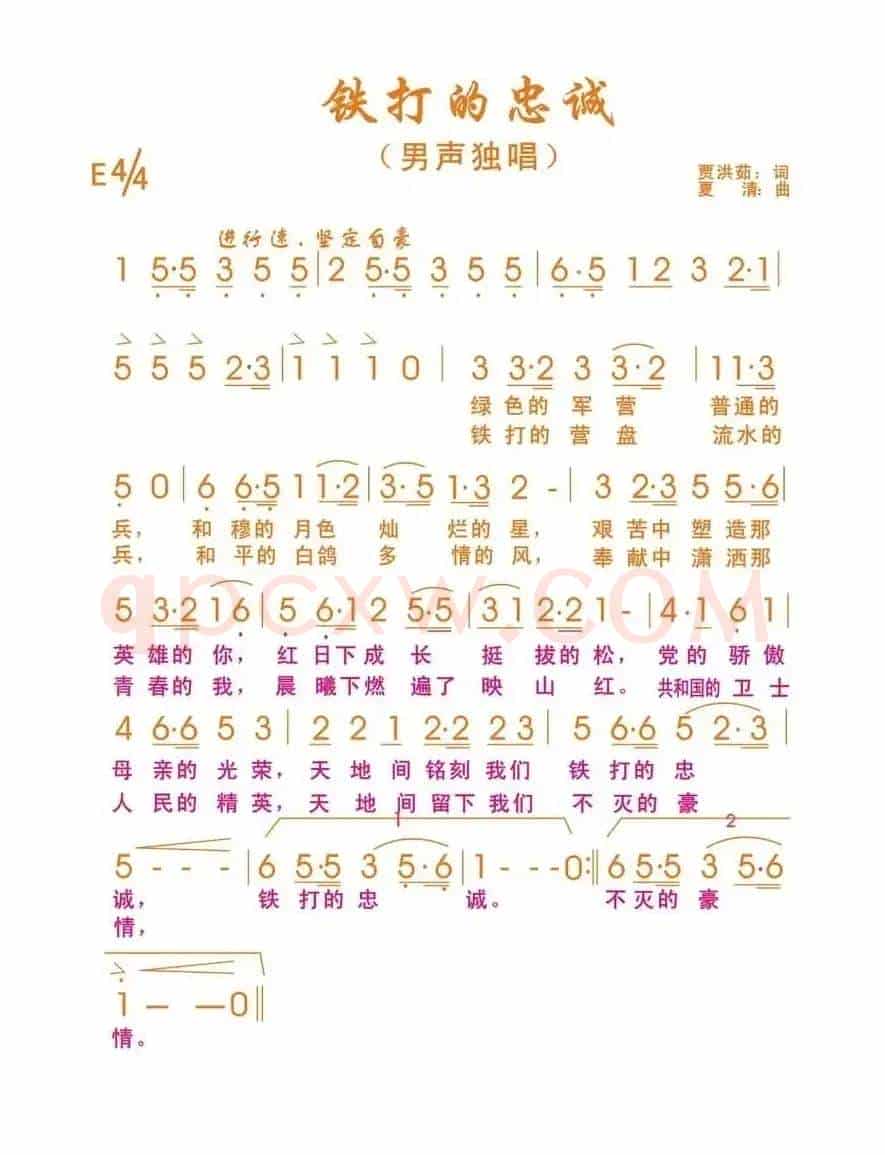 铁打的忠诚
（男声独唱）
E4/4
贾洪茹：词
夏 清：曲
进行速．坚定自豪
1 5·5 3 5 5 | 2 5·5 3 5 5 | 6·5 1 2 3 2·1 |
5 5 5 2·3 | 1 1 1 0 3 3·2 3 3·2 | 1 1·3
绿 色的 军 营 普通的
铁 打的 营 盘 流水的
5 0 | 6 6·5 1 1·2 | 3·5 1·3 2 - | 3 2·3 5 5·6 |
兵， 和 穆的 月色 灿 烂的 星， 艰 苦中 塑 造那
兵， 和 平的 白鸽 多 情的 风， 奉 献中 潇 洒那
qpcxw.COM
5 3·2 1 6 | 5 6·1 2 5·5 | 3 1 2·2 1 - | 4·1 6 1 |
英 雄的 你， 红 日下 成 长 挺 拔的 松， 党 的 骄 傲
青 春的 我， 晨 曦下 燃 遍了 映 山 红。 共和国的 卫 士
4 6·6 5 3 | 2 2 1 2·2 2 3 | 5 6·6 5 2·3 |
母 亲的 光 荣， 天 地 间 铭刻 我们 铁 打的 忠
人 民的 精 英， 天 地 间 留下 我们 不 灭的 豪
1 2
5 - - - | 6 5·5 3 5·6 | 1 - - 0 :‖ 6 5·5 3 5·6
诚， 铁 打的 忠 诚。 不 灭的 豪
情，
1 — — 0 ‖
情。